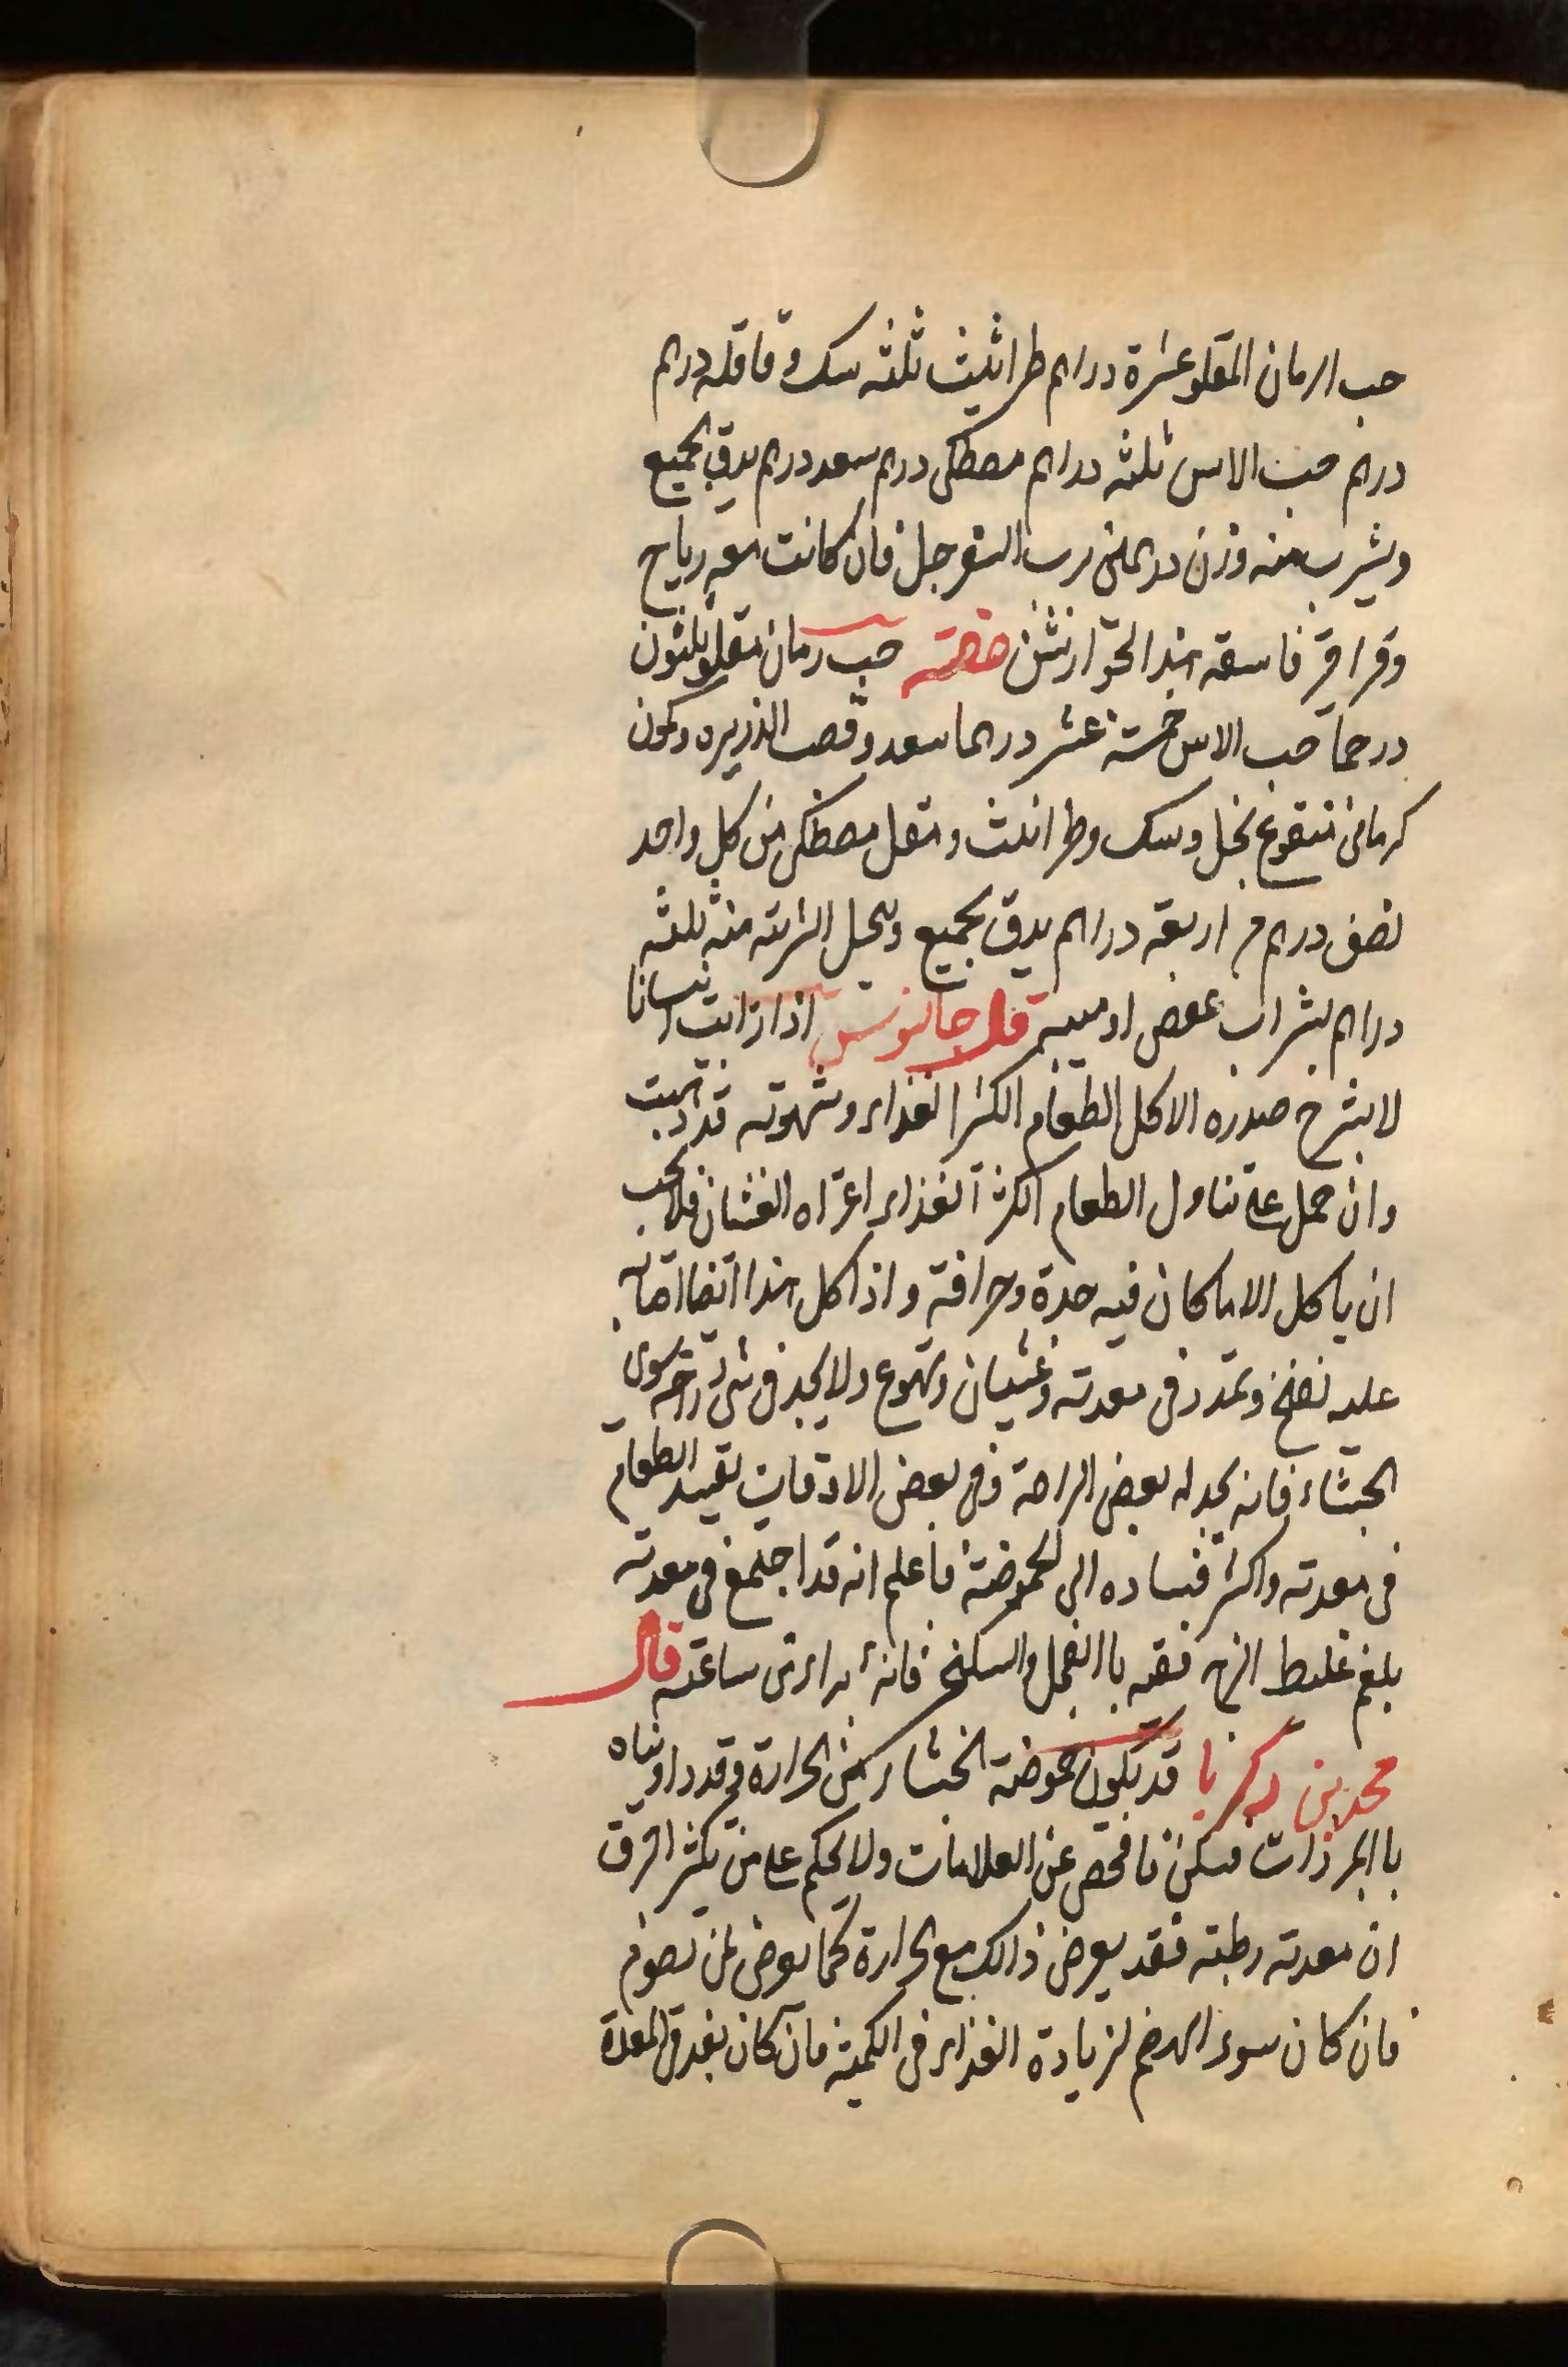 حب الرمان المقلو عشرة دراهم طراثيث ثلثه سك و قاقله درهم
درهم حب الاس ثلثه دراهم مصطكى درهم سعد درهم يدق الجميع
ويشرب منه وزن درهمين برب السفرجل فان كانت معه رياح
وقراقر فاسقه هذا الجوارشن صفته حب رمان مقلو ثلثون
درهما حب الاس خمسة عشر درهما سعد وقصب الذريره وكمون
كرمانى منقوع بخل وسك وطراثيث ومقل مصطكى من كل واحد
نصف درهم اربعة دراهم يدق الجميع وينخل الشربة منه ثلثه
دراهم بشراب عفص او ميبه قال جالينوس اذا رايت انسانا
لا يشرح صدره الاكل الطعام الكثير الغذاء وشهوته قد ذهبت
وان حمل على تناول الطعام الكثير الغذاء اعتراه الغشيان فلا يحب
ان ياكل الا ما كان فيه حدة وحرافة واذا كل هذا ايضا اصابه
عليه نفخ وتمدد فى معدته وغشيان وتهوع ولا يجد فى شى راحه سوى
الجشاء فانه يجد له بعض الراحة وفى بعض الاوقات يفسد الطعام
فى معدته واكثر فساده الى الحموضة فاعلم انه قد اجتمع فى معدته
بلغم غليظ لزج فقيه با الفجل والسكنج فانه يبراء من ساعته قال
محمد بن زكريا قد تكون حموضة الجشاء من الحرارة وقد داويناه
با المبردات فسكن فافحص عن العلامات ولا تحكم على من يكثر البزق
ان معدته رطبته فقد يعرض ذالك مع الحرارة كما يعرض لمن يصوم
فان كان سوء الهضم لزيادة الغذاء فى الكمية فان كان بعد فى المعدة